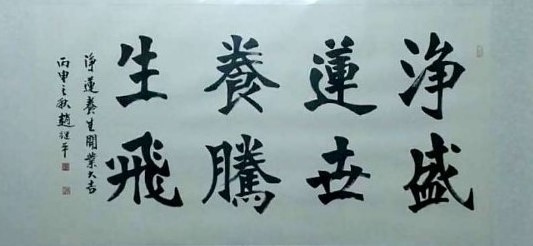 净蓮養生
盛世騰飛
净蓮養生開業大吉
丙申之秋趙平